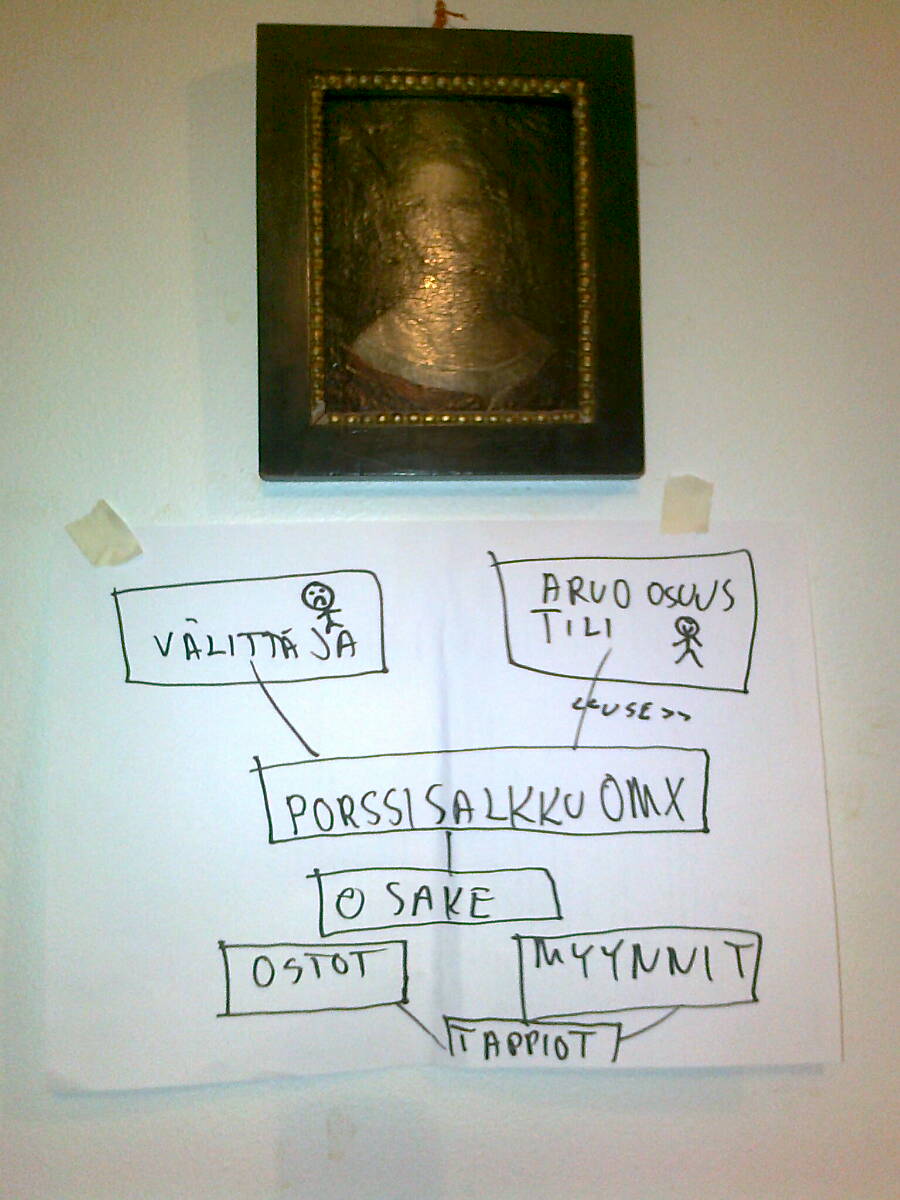 VÄLITTÄJÄ
ARVO OSUUS
TILI
<<USE>>
PORSSISALKKU OMX
OSAKE
OSTOT
MYYNNIT
TAPPIOT